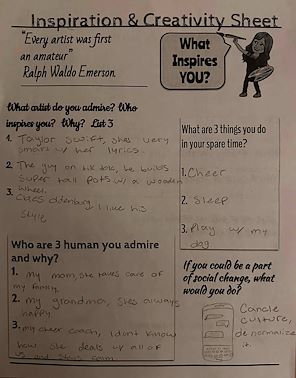 Inspiration & Creativity Sheet
"Every artist was first
an amateur"
Ralph Waldo Emerson.
What
Inspires
YOU?
What artist do you admire? Who
inspires you? Why? List 3
1. Taylor swift, shes very
smart w/ her lyrics.
2. The guy on tik tok, he builds
super tall pots w/ a wooden
wheel.
3. Claes oldenburg I like his
style
What are 3 things you do
in your spare time?
1. Cheer
2. Sleep
3. Play w/ my
dog
Who are 3 human you admire
and why?
1. my mom, she takes care of
my family.
2. my grandma, shes always
happy.
3. my cheer coach, I dont know
how she deals w/ all of
us and stays calm
If you could be a part
of social change, what
would you do?
Cancle
culture,
denormalize
it.